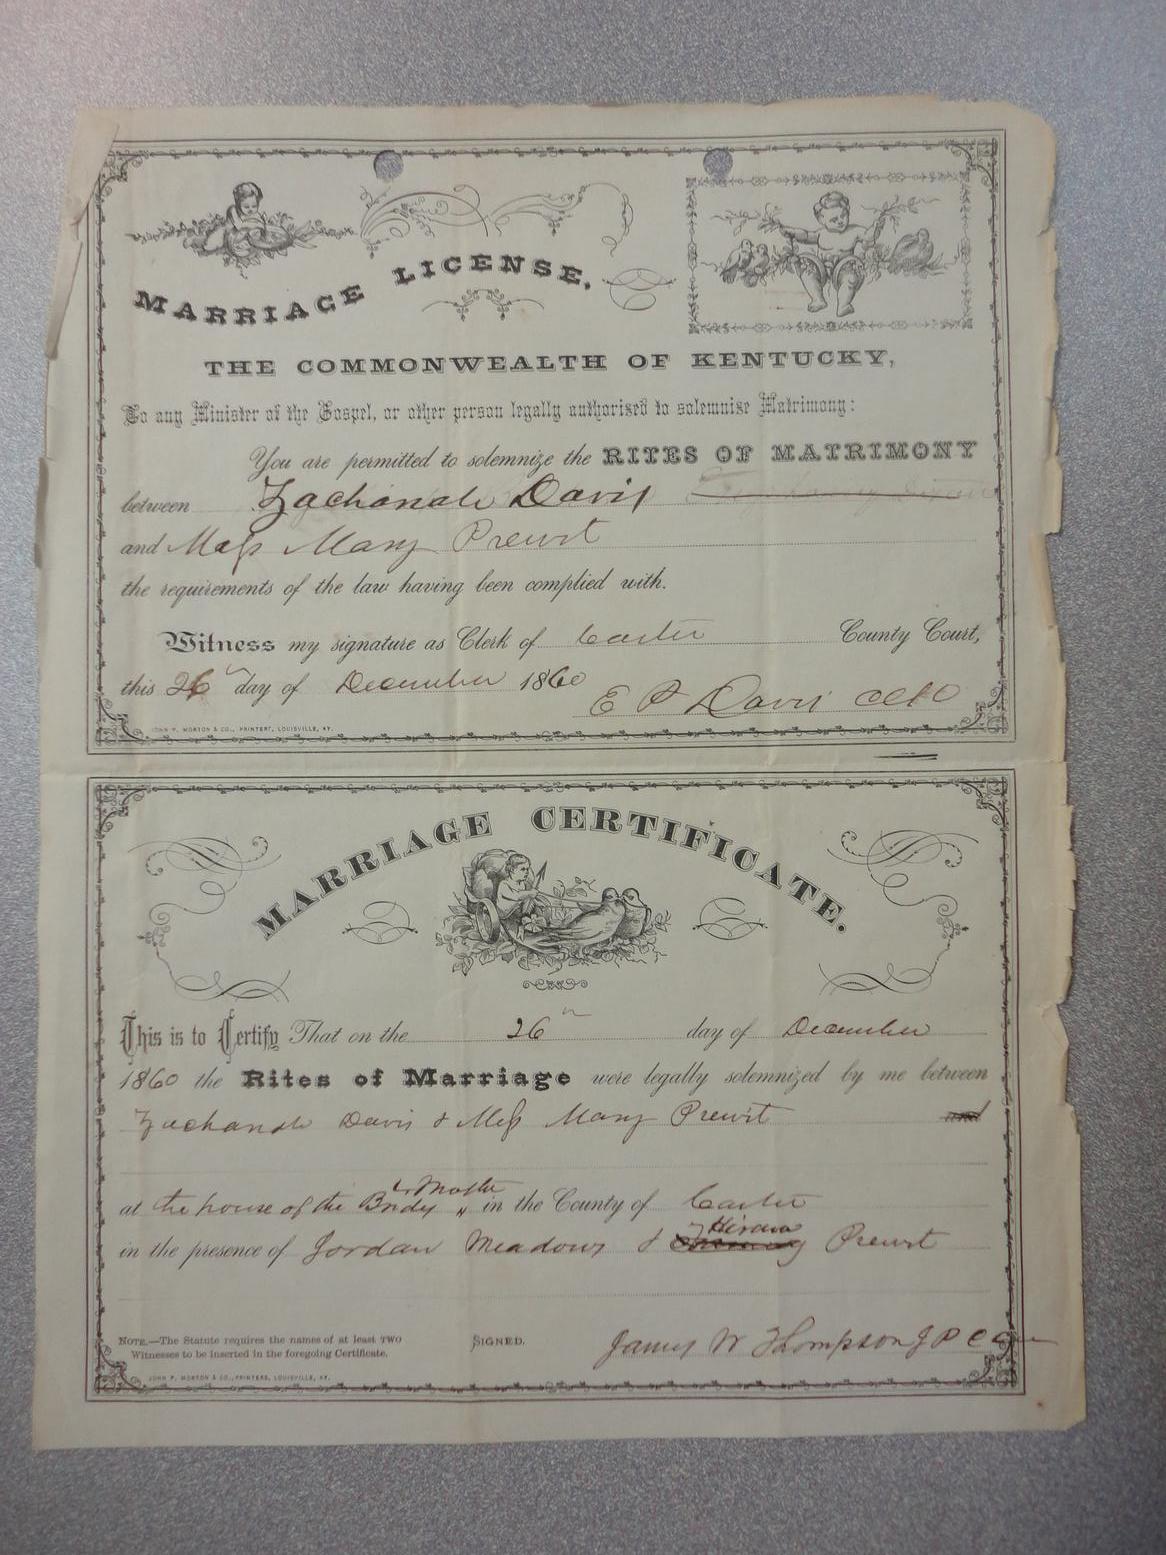 MARRIAGE LICENSE,
THE COMMONWEALTH OF KENTUCKY,
To any Minister of the Gospel, or other person legally authorised to solemnise Matrimony:
You are permitted to solemnize the RITES OF MATRIMONY
between Zachariah Davis
and Miss Mary Prewit
the requirements of the law having been complied with.
Witness my signature as Clerk of Carter County Court,
this 26 day of December 1860
E P Davis
JOHN P. MORTON & CO., PRINTERS, LOUISVILLE, KY.
MARRIAGE CERTIFICATE.
This is to Certify That on the 26 day of December
1860 the Rites of Marriage were legally solemnized by me between
Zachariah Davis & Miss Mary Prewit and
at the house of the Brids Mother in the County of Carter
in the presence of Jordan Meadows & Hiram Prewit
NOTE.—The Statute requires the names of at least TWO
Witnesses to be inserted in the foregoing Certificate.
SIGNED.
James W Thompson J P C C
JOHN P. MORTON & CO., PRINTERS, LOUISVILLE, KY.